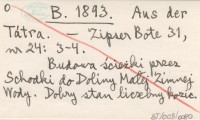 O B. 1893. Aus der
Tatra. — Zipser Bote 31,
nr 24: 3-4.
Budowa ścieżki przez
Schodki do Doliny Małej Zimnej
Wody. Dobry stan liczebny kozic.